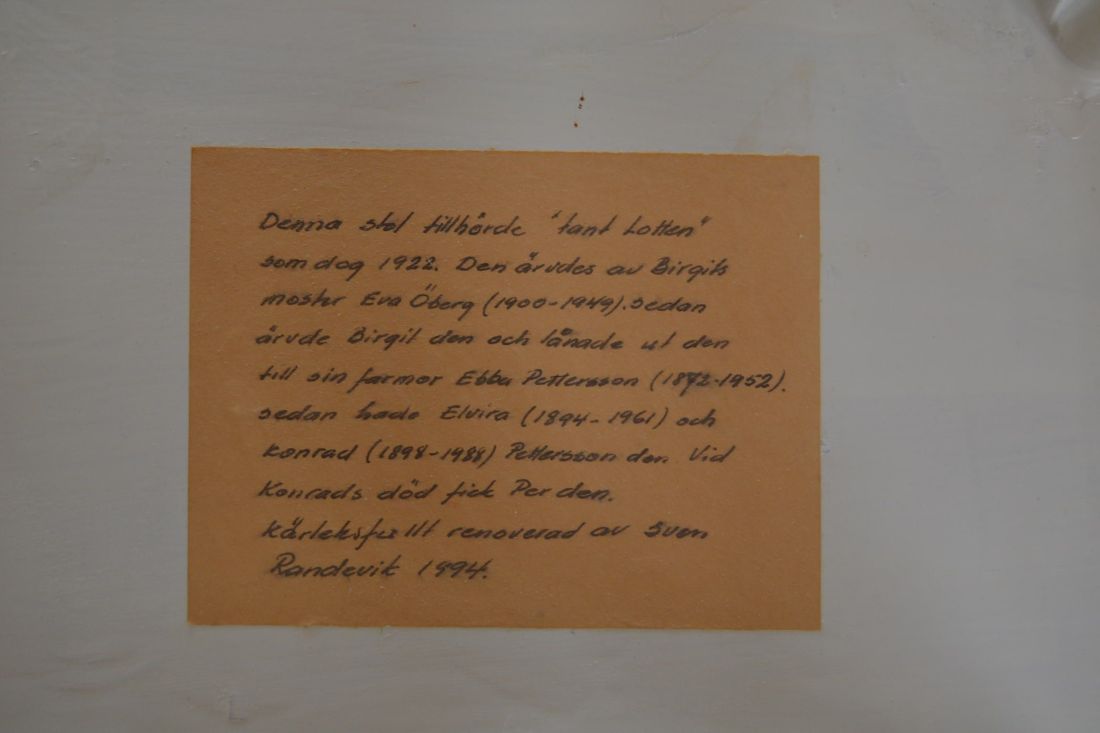 Denna stol tillhörde "tant Lotten"
som dog 1922. Den ärvdes av Birgits
moster Eva Öberg (1900-1949). sedan
ärvde Birgit den och lånade ut den
till sin farmor Ebba Pettersson (1872-1952).
sedan hade Elvira (1894-1961) och
Konrad (1898-1988) Pettersson den. Vid
Konrads död fick Per den.
Kärleksfullt renoverad av Sven
Randevik 1994.